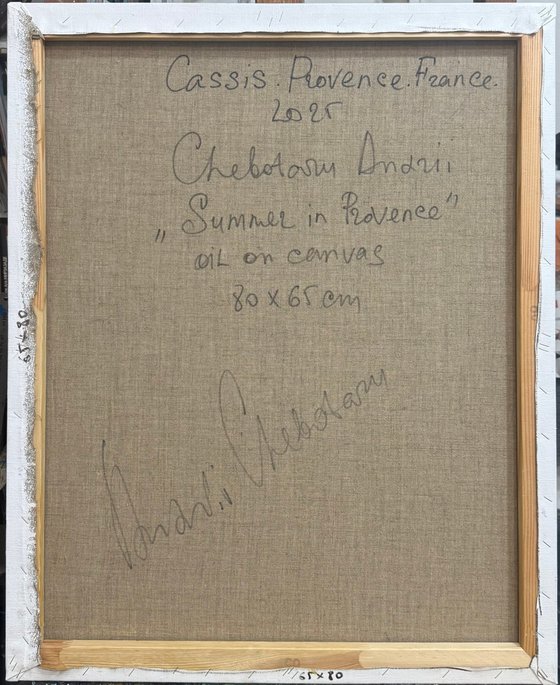 Cassis. Provence. France.
2025
Chebotaru Andrii
„Summer in Provence"
oil on canvas
80 x 65 cm
Andrii Chebotaru
65 x 80
65 x 80